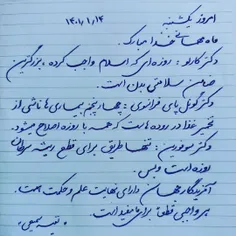 امروز یکشنبه ۱۴۰۱/۱/۱۴
ماه مهمانی خدا مبارک.
دکتر کارلو: روزه‌ای که اسلام واجب کرده، بزرگترین
ضامن سلامتی بدن است.
دکتر گوئل پای فرانسوی: چهار پنجم بیماری‌ها ناشی از
تخمیر غذا در روده هاست که همه با روزه اصلاح میشود.
دکتر سوورین: تنها طریق برای قطع ریشه سرطان
روزه است و بس.
آفریدگار مهربان دارای نهایت علم و حکمت هست.
هر واجبی قطعاً برای ما مفید است.